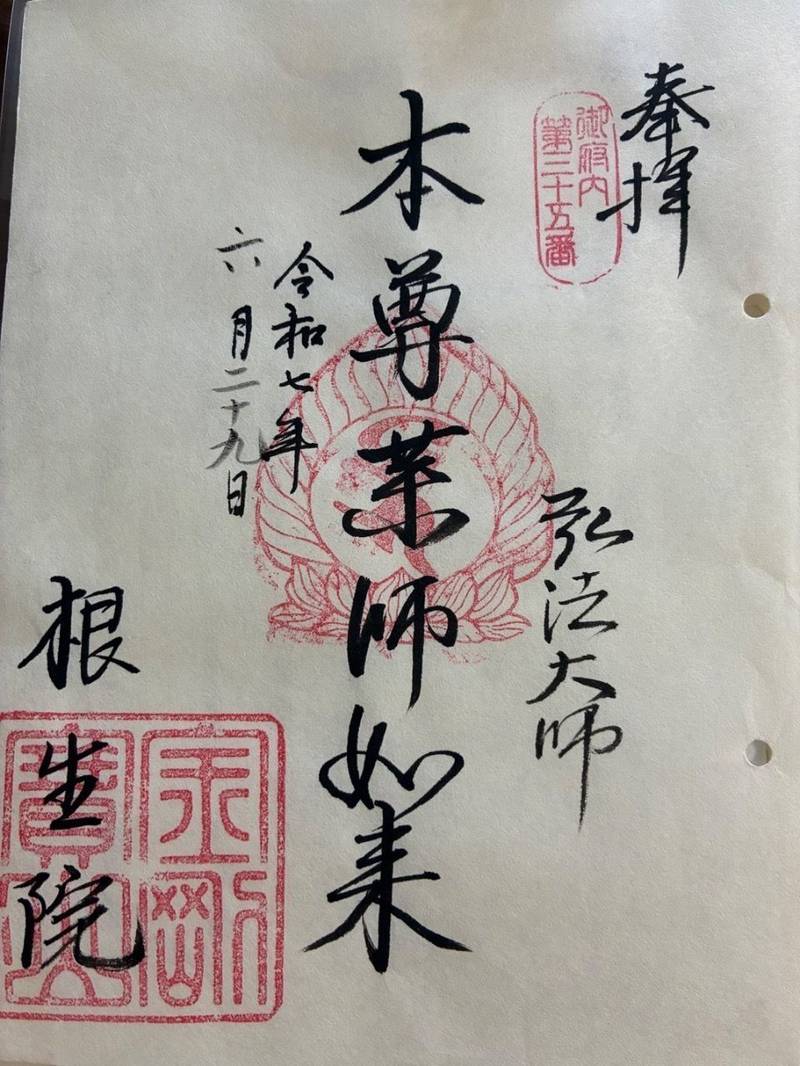 奉拝
御府内
第三十五番
弘法大師
本尊薬師如来
令和七年
六月二十九日
根生院
金剛
寶